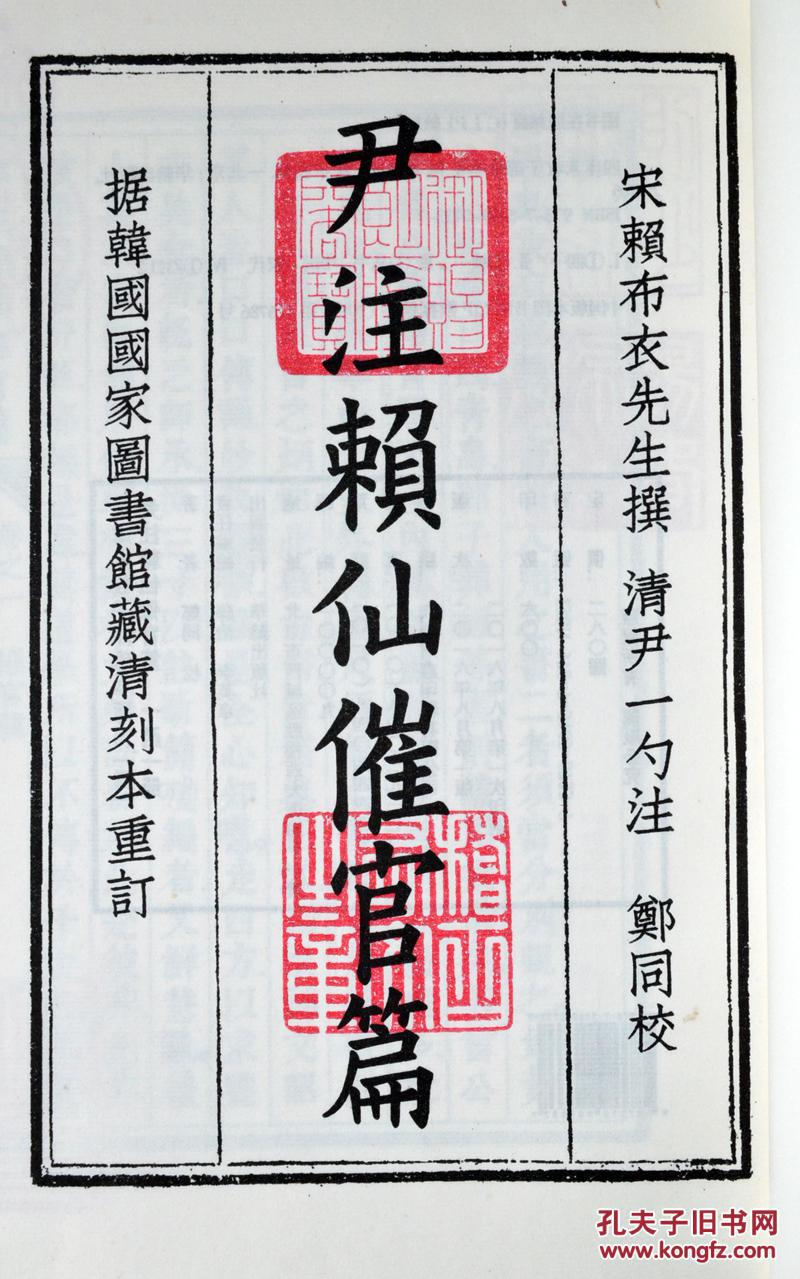 宋賴布衣先生撰　清尹一勺注　鄭同校
尹注賴仙催官篇
据韓國國家圖書館藏清刻本重訂
孔夫子旧书网
www.kongfz.com